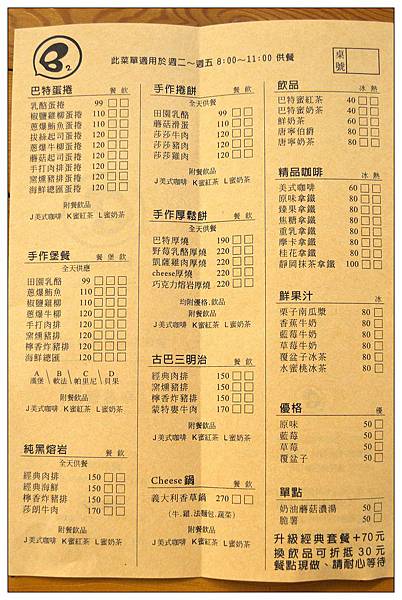 B2
此菜單適用於週二～週五 8:00～11:00 供餐
桌號
巴特蛋捲 餐 飲
乳酪蛋捲 99
椒鹽雞柳蛋捲 110
蔥爆鮪魚蛋捲 110
拔絲起司蛋捲 120
蔥爆牛柳蛋捲 120
蘑菇起司蛋捲 120
手打肉排蛋捲 120
窯燻豬排蛋捲 120
海鮮總匯蛋捲 120
附餐飲品
J 美式咖啡 K 蜜紅茶 L 蜜奶茶
手作堡餐 餐 堡 飲
全天供應
田園乳酪 99
蔥爆鮪魚 110
椒鹽雞柳 110
蔥爆牛柳 120
手打肉排 120
窯燻豬排 120
檸香炸豬排 120
海鮮總匯 120
A B C D
漢堡 軟法 帕里尼 貝果
附餐飲品
J 美式咖啡 K 蜜紅茶 L 蜜奶茶
純黑熔岩 餐 飲
全天供餐
經典肉排 150
經典海鮮 150
檸香炸豬排 150
莎朗牛肉 170
附餐飲品
J 美式咖啡 K 蜜紅茶 L 蜜奶茶
手作捲餅 餐 飲
全天供餐
田園乳酪 99
蘑菇滑蛋 110
莎莎牛肉 120
莎莎豬肉 120
莎莎雞肉 120
附餐飲品
J 美式咖啡 K 蜜紅茶 L 蜜奶茶
手作厚鬆餅 餐 飲
全天供餐
巴特厚燒 190
野莓乳酪厚燒 220
凱薩雞肉厚燒 220
cheese厚燒 220
巧克力熔岩厚燒 190
均附優格.飲品
J 美式咖啡 K 蜜紅茶 L 蜜奶茶
古巴三明治 餐 飲
經典肉排 150
窯燻豬排 150
檸香炸豬排 150
蒙特婁牛肉 170
附餐飲品
J 美式咖啡 K 蜜紅茶 L 蜜奶茶
Cheese鍋 餐 飲
義大利香草鍋 270
(牛.雞.法麵包.蔬菜)
附餐飲品
J 美式咖啡 K 蜜紅茶 L 蜜奶茶
飲品 冰 熱
巴特蜜紅茶 40
巴特蜜奶茶 40
鮮奶茶 60
唐寧伯爵 80
唐寧奶茶 80
精品咖啡 冰 熱
美式咖啡 60
原味拿鐵 80
臻果拿鐵 80
焦糖拿鐵 80
重乳拿鐵 80
摩卡拿鐵 80
桂花拿鐵 80
靜岡抹茶拿鐵 100
鮮果汁 冰
栗子南瓜漿 80
香蕉牛奶 80
藍莓牛奶 80
草莓牛奶 80
覆盆子冰茶 80
水蜜桃冰茶 80
優格 優
原味 50
藍莓 50
草莓 50
覆盆子 50
單點
奶油蘑菇濃湯 50
脆薯 50
升級經典套餐＋70元
換飲品可折抵30元
餐點現做、請耐心等待